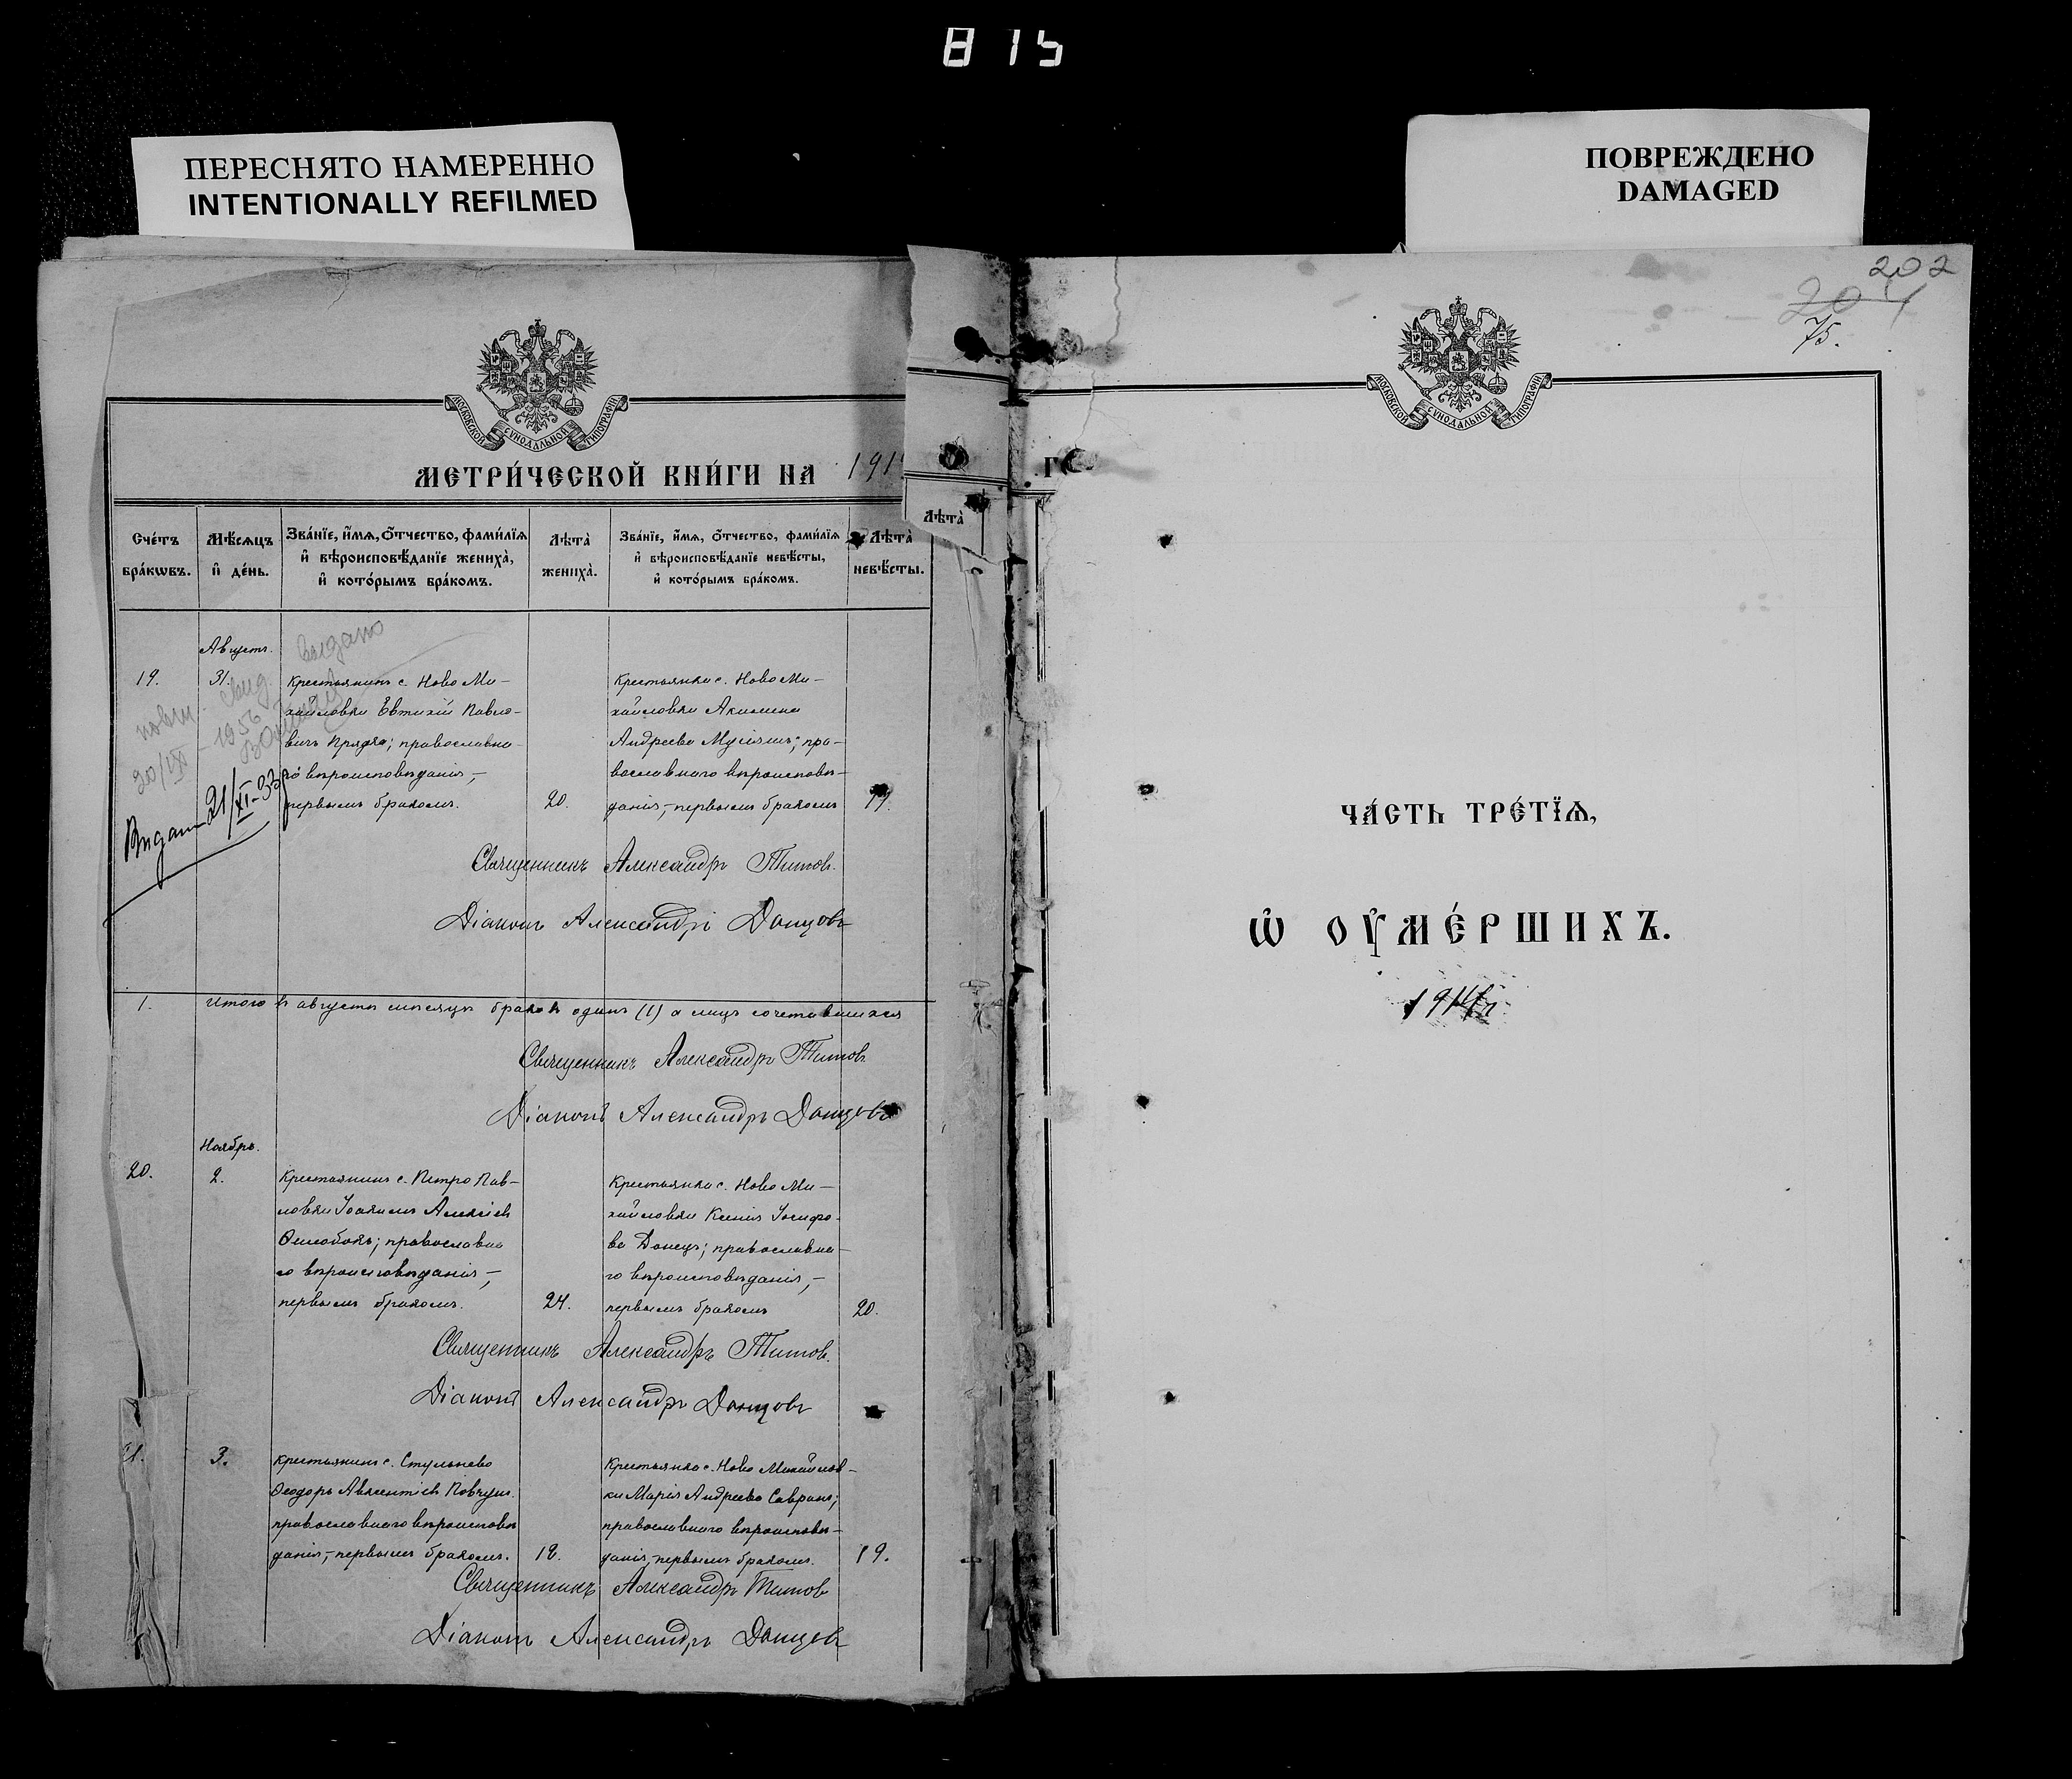 815
ПЕРЕСНЯТО НАМЕРЕННО
INTENTIONALLY REFILMED
ПОВРЕЖДЕНО
DAMAGED
МОСКОВСКОЙ СѴНОДАЛЬНОЙ ТИПОГРАФІИ
МЕТРИ́ЧЕСКОЙ КНИ́ГИ НА 191
Счетъ бра́кѡвъ.
Мѣ́сяцъ и де́нь.
Зва́нїе, и́мѧ, ѻ́тчество, фами́лїѧ
и҆ вѣроисповѣ́данїе жениха̀,
и҆ кото́рымъ бра́комъ.
Лѣта̀ жениха̀.
Зва́нїе, и́мѧ, ѻ́тчество, фами́лїѧ
и҆ вѣроисповѣ́данїе невѣ́сты,
и҆ кото́рымъ бра́комъ.
Лѣта̀ невѣ́сты.
Лѣта̀
Августъ.
19.
31.
Крестьянинъ с. Ново Ми-
хайловки Евтихій Павло-
вичъ Прядко; православна-
го вѣроисповѣданія,-
первымъ бракомъ.
20.
Крестьянка с. Ново Ми-
хайловки Акилина
Андреева; пра-
вославнаго вѣроисповѣ-
данія,-первымъ бракомъ
выдано
свид.
1956
21/XI-33
Священникъ Александръ Титовъ.
Діаконъ Александръ Донцовъ
1.
Итого въ августѣ мѣсяцѣ браковъ одинъ (1) а лицъ сочетавшихся
Священникъ Александръ Титовъ
Діаконъ Александръ Донцовъ
Ноябрь.
20.
2.
Крестьянинъ с. Петро Пав-
ловки Іоакимъ Алексіевъ
православна
го вѣроисповѣданія,-
первымъ бракомъ.
24.
Крестьянка с. Ново Ми-
хайловки Ксенія Іосифо-
ва Донецъ; православна-
го вѣроисповѣданія,-
первымъ бракомъ
20.
Священникъ Александръ Титовъ.
Діаконъ Александръ Донцовъ
3.
Крестьянинъ с. Стульнево
Ѳеодоръ Авксентіевъ
православнаго вѣроисповѣ
данія,-первымъ бракомъ.
Крестьянка с. Ново Михайлов-
ки Марія Андреева Савранъ;
православнаго вѣроисповѣ-
данія,-первымъ бракомъ.
19.
Священникъ Александръ Титовъ
Діаконъ Александръ Донцовъ
202
204
75.
МОСКОВСКОЙ СѴНОДАЛЬНОЙ ТИПОГРАФІИ
ЧА́СТЬ ТРЕ́ТЇѦ,
Ѡ҆ ОУ҆МЕ́РШИХЪ.
1914 г.